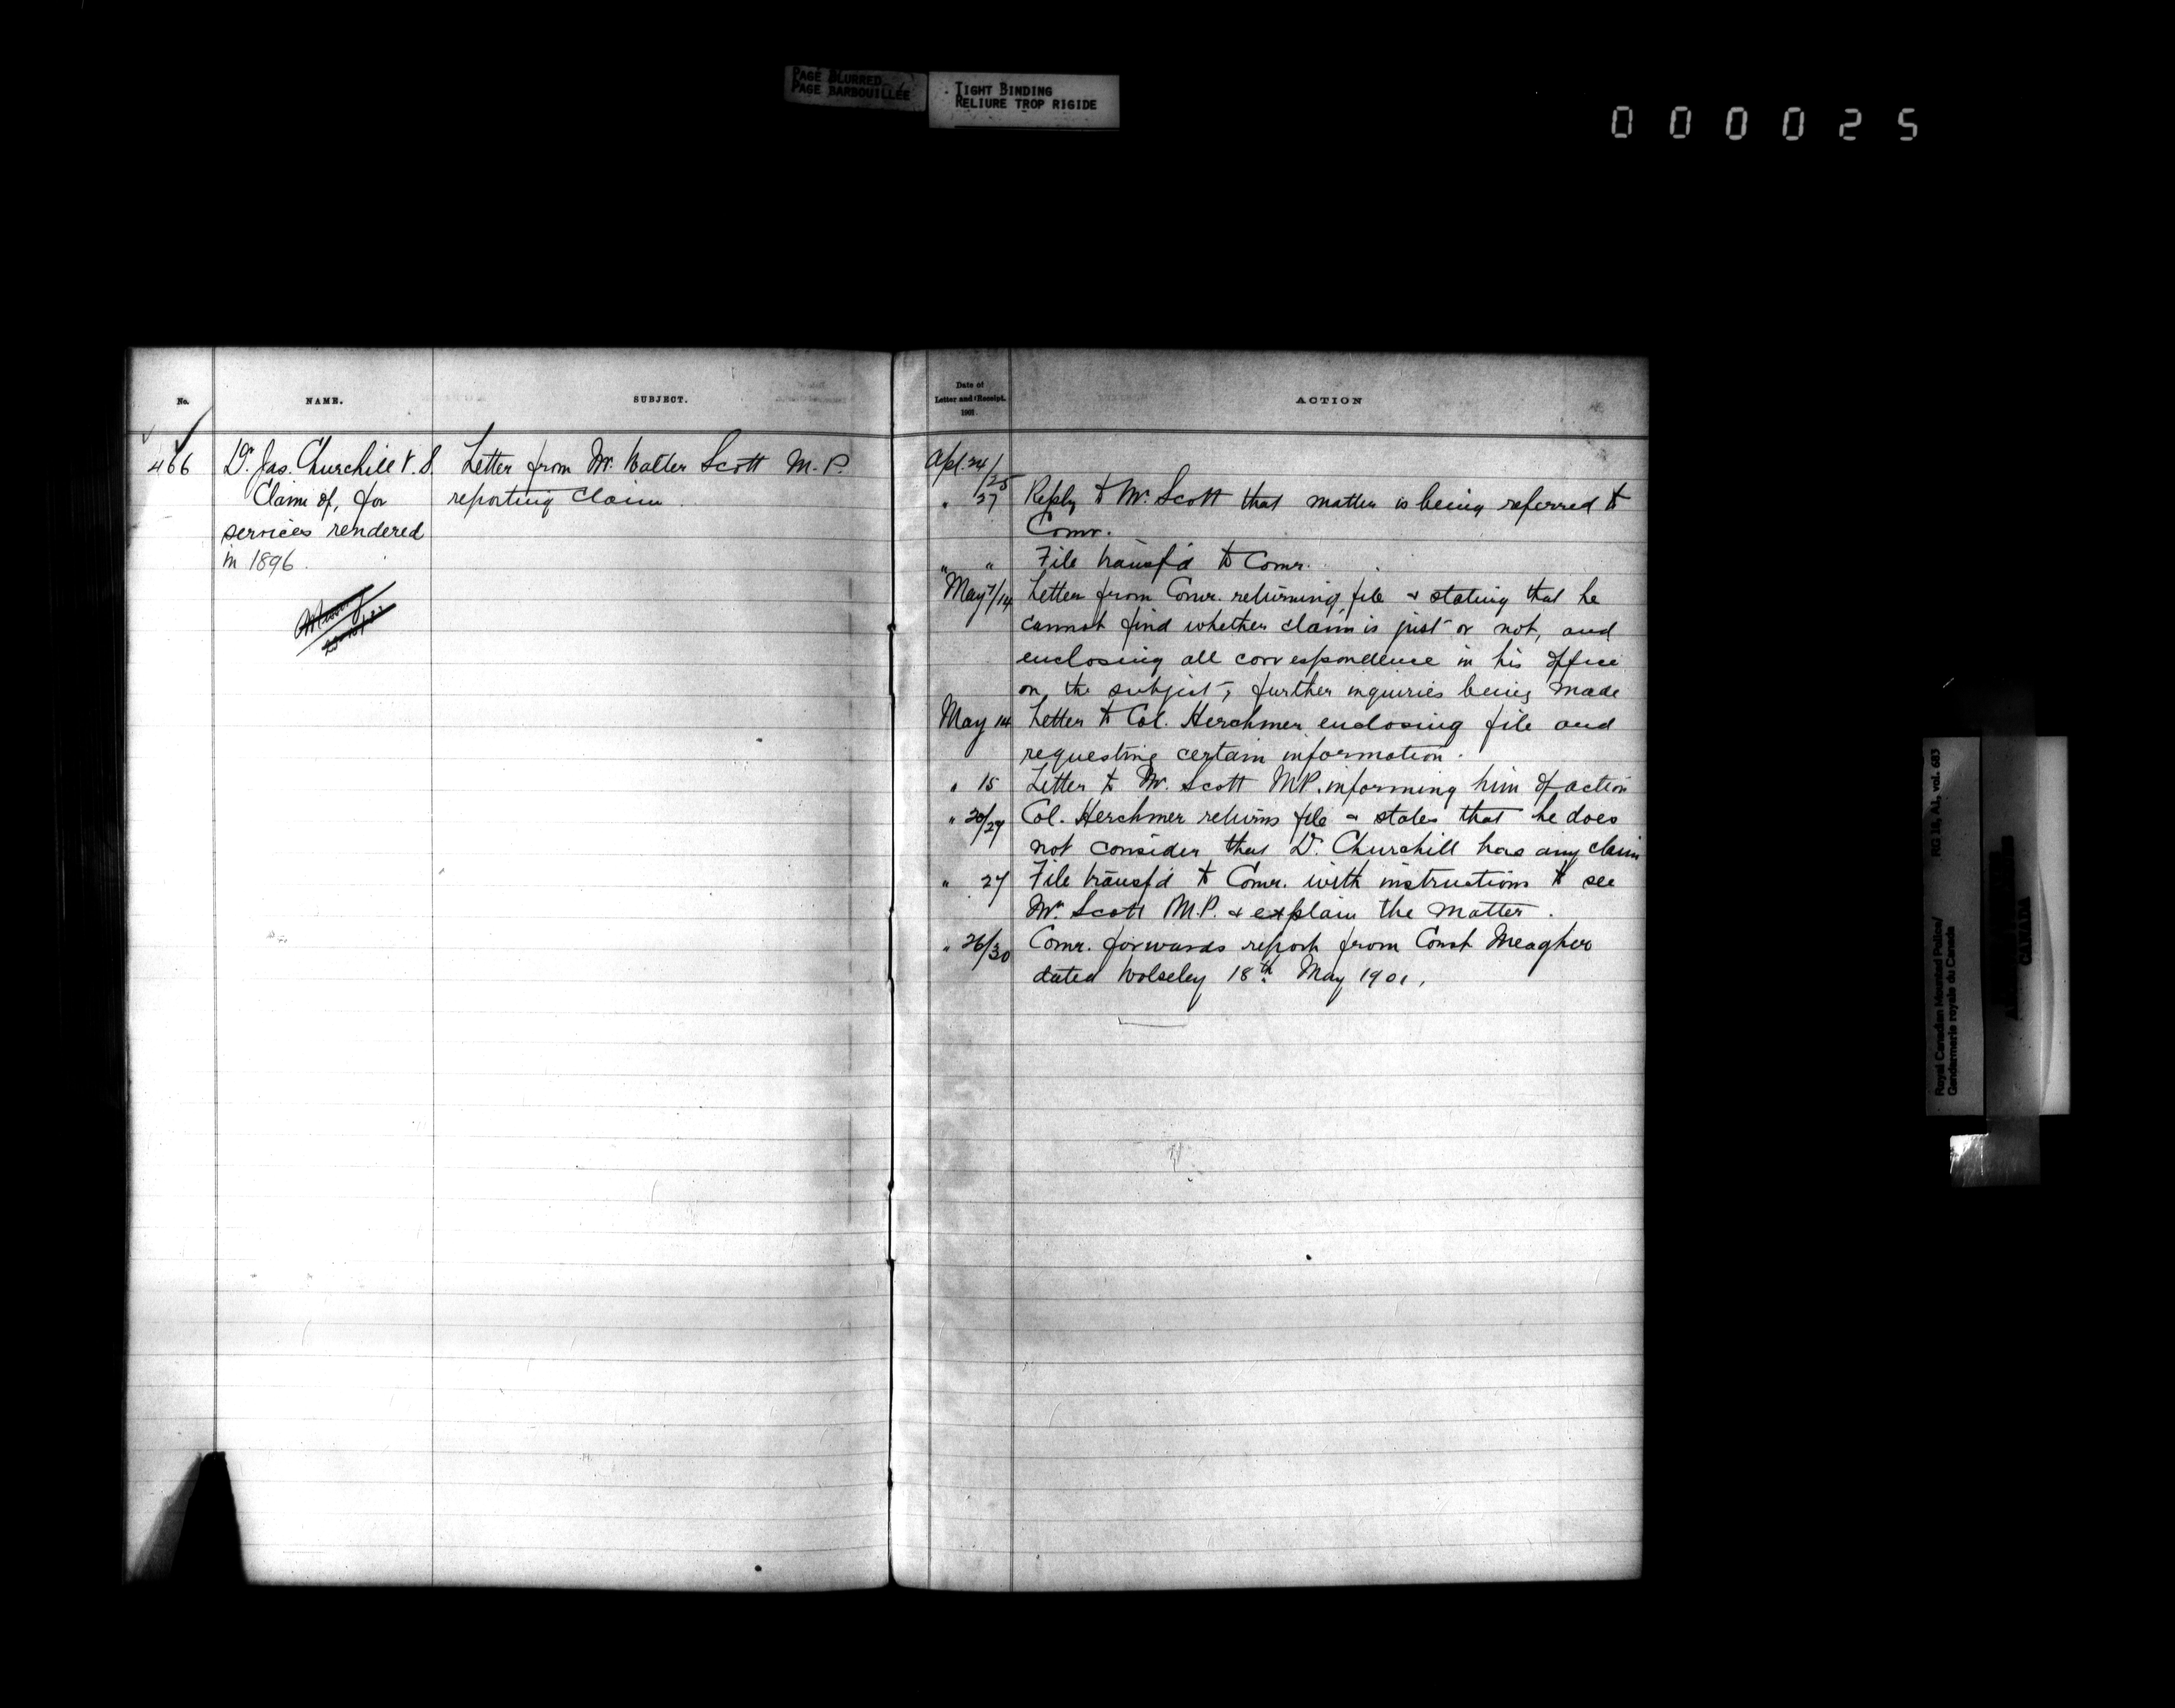 PAGE BLURRED
PAGE BARBOUILLEE
TIGHT BINDING
RELIURE TROP RIGIDE
000025
No.
NAME.
SUBJECT.
466
Dr. Jas. Churchill V.S.
Claim of, for
services rendered
in 1896.
Letter from Mr. Walter Scott M.P.
reporting claim.
Date of
Letter and Receipt.
1901.
ACTION
Apl. 24/25
" 27 Reply to Mr. Scott that matter is being referred to
Comr.
" " File transf'd to Comr.
May 7/14 Letter from Comr. returning file & stating that he
cannot find whether claim is just or not, and
enclosing all correspondence in his office
on the subject, further inquiries being made
May 14 Letter to Col. Herchmer enclosing file and
requesting certain information.
" 15 Letter to Mr. Scott MP. informing him of action
" 20/27 Col. Herchmer returns file & states that he does
not consider that Dr. Churchill has any claim
" 27 File transf'd to Comr. with instructions to see
Mr. Scott M.P. & explain the matter.
" 26/30 Comr. forwards report from Const Meagher
dated Wolseley 18th May 1901.
Royal Canadian Mounted Police/
Gendarmerie royale du Canada
RG 18, A1, vol. 683
CANADA